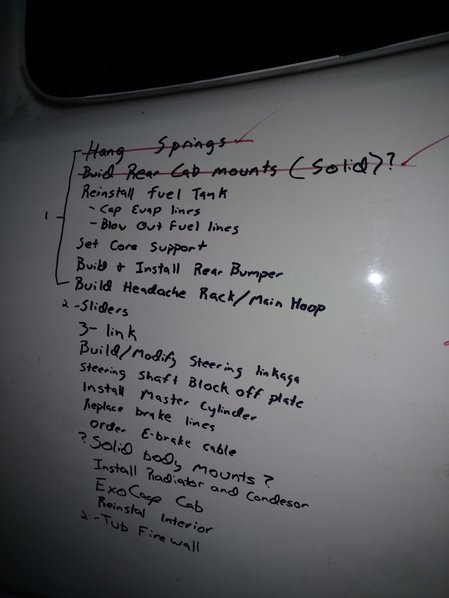 Hang Springs
Build Rear Cab mounts (Solid)?
1 - Reinstall fuel Tank
- Cap Evap lines
- Blow Out Fuel lines
Set Core Support
Build & Install Rear Bumper
Build Headache Rack/Main Hoop
2 - Sliders
3- link
Build/Modify Steering linkaga
Steering Shaft Block off plate
Install Master Cylinder
Replace brake lines
order E-brake cable
? Solid body mounts ?
Install Radiator and Condesor
ExoCage Cab
Reinstal Interior
2 - Tub Fire wall